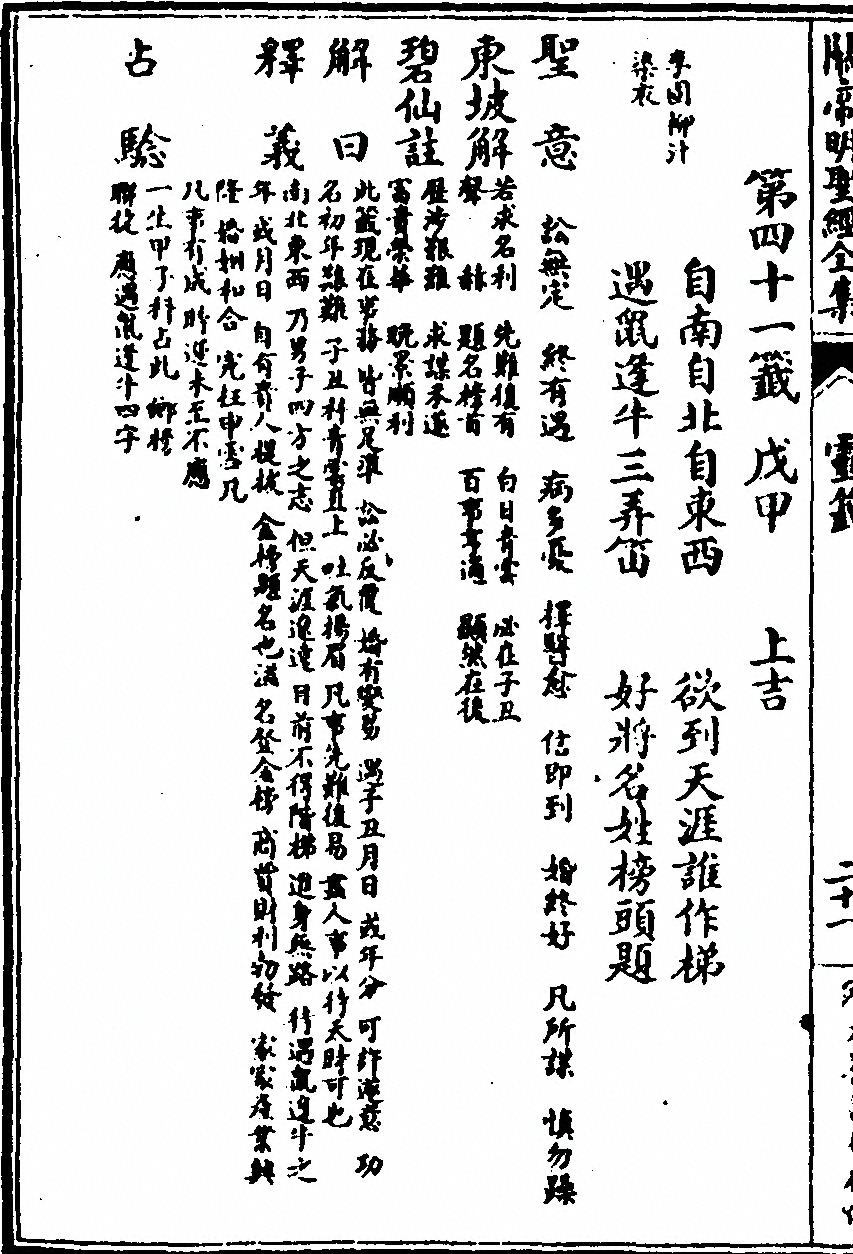 關帝明聖經全集
靈籤
二十一
第四十一籤 戊甲 上吉
自南自北自東西 欲到天涯誰作梯
遇鼠逢牛三弄笛 好將名姓榜頭題
李固柳汁
染衣
聖意 訟無定 終有遇 病多憂 擇醫愈 信即到 婚終好 凡所謀 慎勿躁
東坡解 若求名利 先難後有 白日青雲 必在子丑
聲 題名榜首 百事亨通 顯然在後
碧仙註 歷涉艱難 求謀不遂
富貴榮華 晚景順利
解曰 此籤現在事務 皆無足準 訟必反覆 婚有變易 遇子丑月日 或年分 可許遂意 功
名初年雖難 子丑科青雲直上 吐氣揚眉 凡事先難後易 盡人事以待天時可也
釋義 南北東西 乃男子四方之志 但天涯遼遠 目前不得階梯 進身無路 待遇鼠逢牛之
年 或月日 自有貴人提拔 金榜題名也 滿名登金榜 商賈財利初發 家家產業興
隆 婚姻和合 冤枉申雪 凡
凡事有成 時運未至不應
占驗 一生甲子科占此 鄉榜
聯捷 應遇鼠逢牛四字